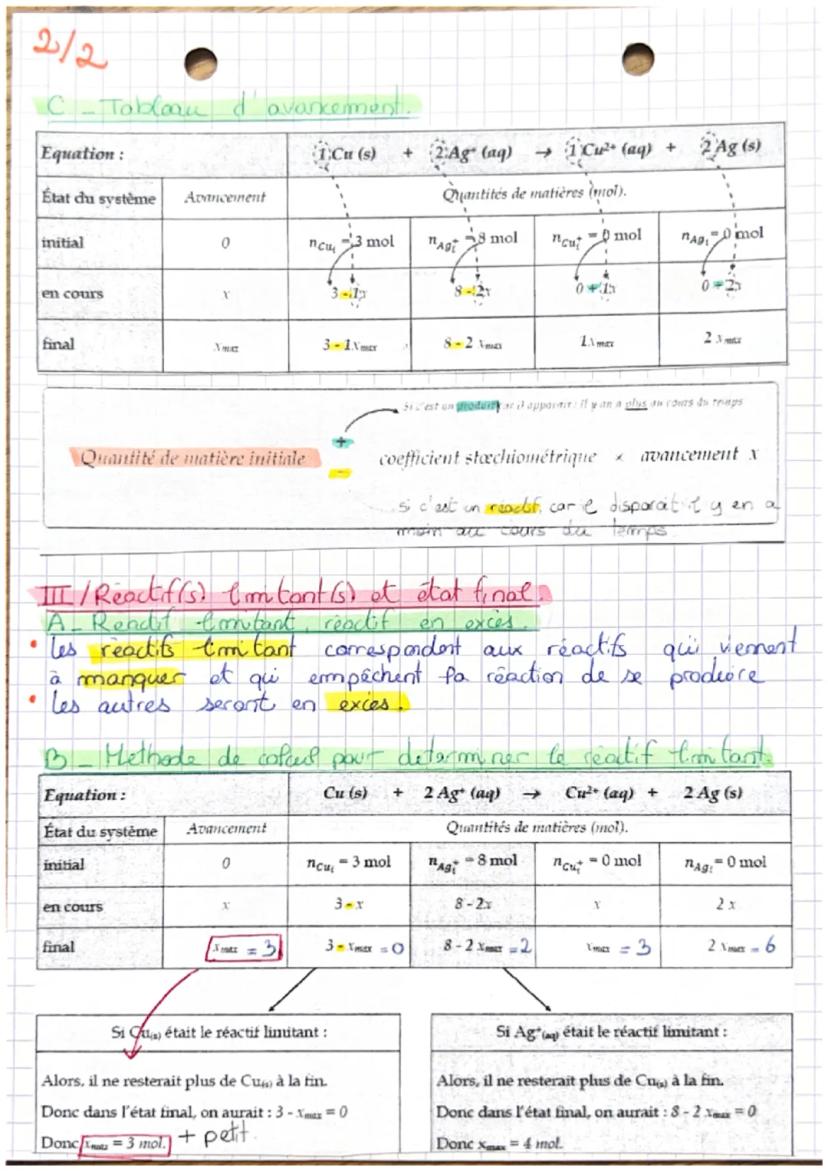 2/2
C - Tableau d'avancement.
Equation : 1 Cu (s) + 2 Ag⁺ (aq) → 1 Cu²⁺ (aq) + 2 Ag (s)
État du système Avancement Quantités de matières (mol).
initial 0 nCuᵢ = 3 mol nAg⁺ᵢ = 8 mol nCu⁺ᵢ = 0 mol nAgᵢ = 0 mol
en cours x 3 - 1x 8 - 2x 0 + 1x 0 + 2x
final xmax 3 - 1xmax 8 - 2 xmax 1xmax 2 xmax
Si c'est un produit car il apparait : il y en a plus au cours du temps
+
Quantité de matière initiale coefficient stœchiométrique × avancement x
-
si c'est un réactif car il disparait il y en a
moin au cours du temps
III / Réactif(s) limitant(s) et état final.
A - Réactif limitant, réactif en excès.
• Les réactifs limitant correspondent aux réactifs qui viennent
à manquer et qui empêchent la réaction de se produire
• Les autres seront en excès.
B - Méthode de calcul pour déterminer le réactif limitant.
Equation : Cu (s) + 2 Ag⁺ (aq) → Cu²⁺ (aq) + 2 Ag (s)
État du système Avancement Quantités de matières (mol).
initial 0 nCuᵢ = 3 mol nAg⁺ᵢ = 8 mol nCu⁺ᵢ = 0 mol nAgᵢ = 0 mol
en cours x 3 - x 8 - 2x x 2 x
final xmax = 3 3 - xmax = 0 8 - 2 xmax = 2 xmax = 3 2 xmax = 6
Si Cu(s) était le réactif limitant :
Alors, il ne resterait plus de Cu(s) à la fin.
Donc dans l'état final, on aurait : 3 - xmax = 0
Donc xmax = 3 mol. + petit.
Si Ag⁺(aq) était le réactif limitant :
Alors, il ne resterait plus de Cu(s) à la fin.
Donc dans l'état final, on aurait : 8 - 2 xmax = 0
Donc xmax = 4 mol.